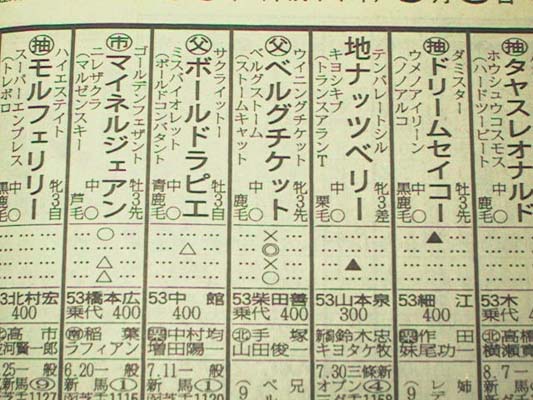 抽タヤスレオナルド
ホウシュウコスモス
(ハードツービート)
中
鹿毛
53木
抽ドリームセイコー
ダミスター
ウメノアイリーン
(ノノアルコ)
牡3先
中〇
黒鹿毛
▲
53細江
地ナッツベリー
テンパレートシル
キヨシキブ
(トランスアランT
牝3差
中〇
栗毛
▲
53山本泉
300
鈴木忠
キヨタケ牧
7.30三條新
オープン④
父ベルグチケット
ウイニングチケット
ベルグストーム
(ストームキャット
牝3先
中〇
鹿毛
×
◎
×
〇
53柴田善
乗代 400
手塚
山田俊一
父ボールドラピエ
サクライットー
ミスバイオレット
(ボールドコンバタント
牡3自
中〇
青鹿毛
△
53中舘
中村均
増田陽一
7.11一般
新馬①
市マイネルジェアン
ゴールデンフェザント
ニレザクラ
(マルゼンスキー
牡3先
中〇
芦毛
〇
△
△
53橋本広
乗代 400
稲葉
ラフィアン
6.20一般
新馬①
抽モルフェリリー
ハイエステイト
スーパーエンプレス
(トレボロ
牝3自
中〇
黒鹿毛
53北村宏
高市
河賢一郎
25一般
新馬⑨